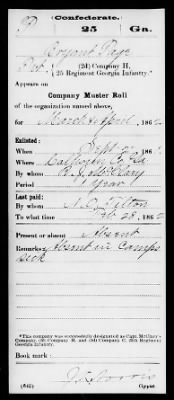 Confederate.
P 25 Ga.
Bryant Page
Pvt. (2d) Company H,
25 Regiment Georgia Infantry.*
Appears on
Company Muster Roll
of the organization named above,
for March & April, 186
Enlisted:
When Sept
Where Ga
By whom
Period 1 year
Last paid:
By whom Tilton
To what time Feb 28, 186
Present or absent Absent
Remarks: Absent in Camps
sick
*This company was successively designated as Capt.
Company, (2d) Company H, and Company 25th Regiment
Georgia Infantry.
Book mark:
(642) Copyist.